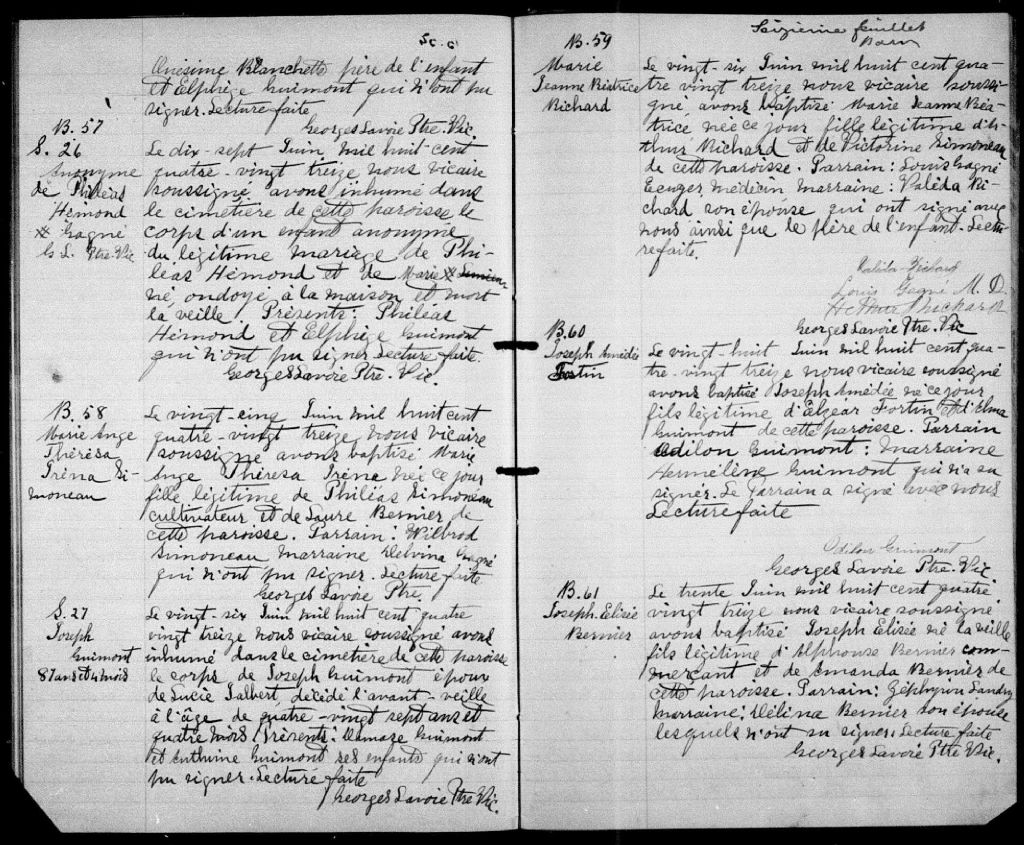 Onésime Blanchette père de l'enfant
et Elphège Guimont qui n'ont pu
signer. Lecture faite
Georges Lavoie Ptre. Vic.
B. 57
S. 26
Anonyme
de Philéas
Hémond
# Gagné
G. L. Ptre. Vic
Le dix-sept Juin mil huit cent
quatre-vingt treize nous vicaire
soussigné avons inhumé dans
le cimetière de cette paroisse le
corps d'un enfant anonyme
du légitime mariage de Phi-
léas Hémond et de Marie #
né, ondoyé à la maison et mort
la veille Présents: Philéas
Hémond et Elphège Guimont
qui n'ont pu signer. Lecture faite.
Georges Lavoie Ptre. Vic.
B. 58
Marie Ange
Thérésa
Iréna Si-
moneau
Le vingt-cinq Juin mil huit cent
quatre-vingt treize nous vicaire
soussigné avons baptisé Marie
Ange Thérésa Iréna née ce jour
fille légitime de Philéas Simoneau
cultivateur et de Laure Bernier de
cette paroisse. Parrain: Wilbrod
Simoneau Marraine Delvina Gagné
qui n'ont pu signer. Lecture faite
Georges Lavoie Ptre.
S. 27
Joseph
Guimont
87 ans et 4 mois
Le vingt-six Juin mil huit cent quatre
vingt treize nous vicaire soussigné avons
inhumé dans le cimetière de cette paroisse
le corps de Joseph Guimont époux
de Lucie Talbert, décédé l'avant-veille
à l'âge de quatre-vingt sept ans et
quatre mois Présents: Damase Guimont
et Guimont ses enfants qui n'ont
pu signer. Lecture faite
Georges Lavoie Ptre Vic.
Seizième feuillet
B. 59
Marie
Jeanne Béatrice
Richard
Le vingt-six Juin mil huit cent qua-
tre vingt treize nous vicaire soussi-
gné avons baptisé Marie Jeanne Béa-
trice née ce jour fille légitime d'Ar-
thur Richard et de Victorine Simoneau
de cette paroisse. Parrain: Louis Gagné
Ecuyer Médecin Marraine: Valéda Ri-
chard son épouse qui ont signé avec
nous ainsi que le père de l'enfant. Lectu-
re faite.
Valéda Richard
Louis Gagné M. D.
Arthur Richard
Georges Lavoie Ptre. Vic
B. 60
Joseph Amédée
Fortin
Le vingt-huit Juin mil huit cent qua-
tre-vingt treize nous vicaire soussigné
avons baptisé Joseph Amédée né ce jour
fils légitime d'Algear Fortin et d'Elma
Guimont de cette paroisse. Parrain
Odilon Guimont: Marraine
Herméline Guimont qui n'a su
signer. Le Parrain a signé avec nous
Lecture faite
Odilon Guimont
Georges Lavoie Ptre. Vic
B. 61
Joseph Elisée
Bernier
Le trente Juin mil huit cent quatre
vingt treize nous vicaire soussigné
avons baptisé Joseph Elisée né la veille
fils légitime d'Alphonse Bernier com-
merçant et de Amanda Bernier de
cette paroisse. Parrain: Zéphyrin Landry
Marraine: Délina Bernier son épouse
lesquels n'ont su signer. Lecture faite
Georges Lavoie Ptre Vic.